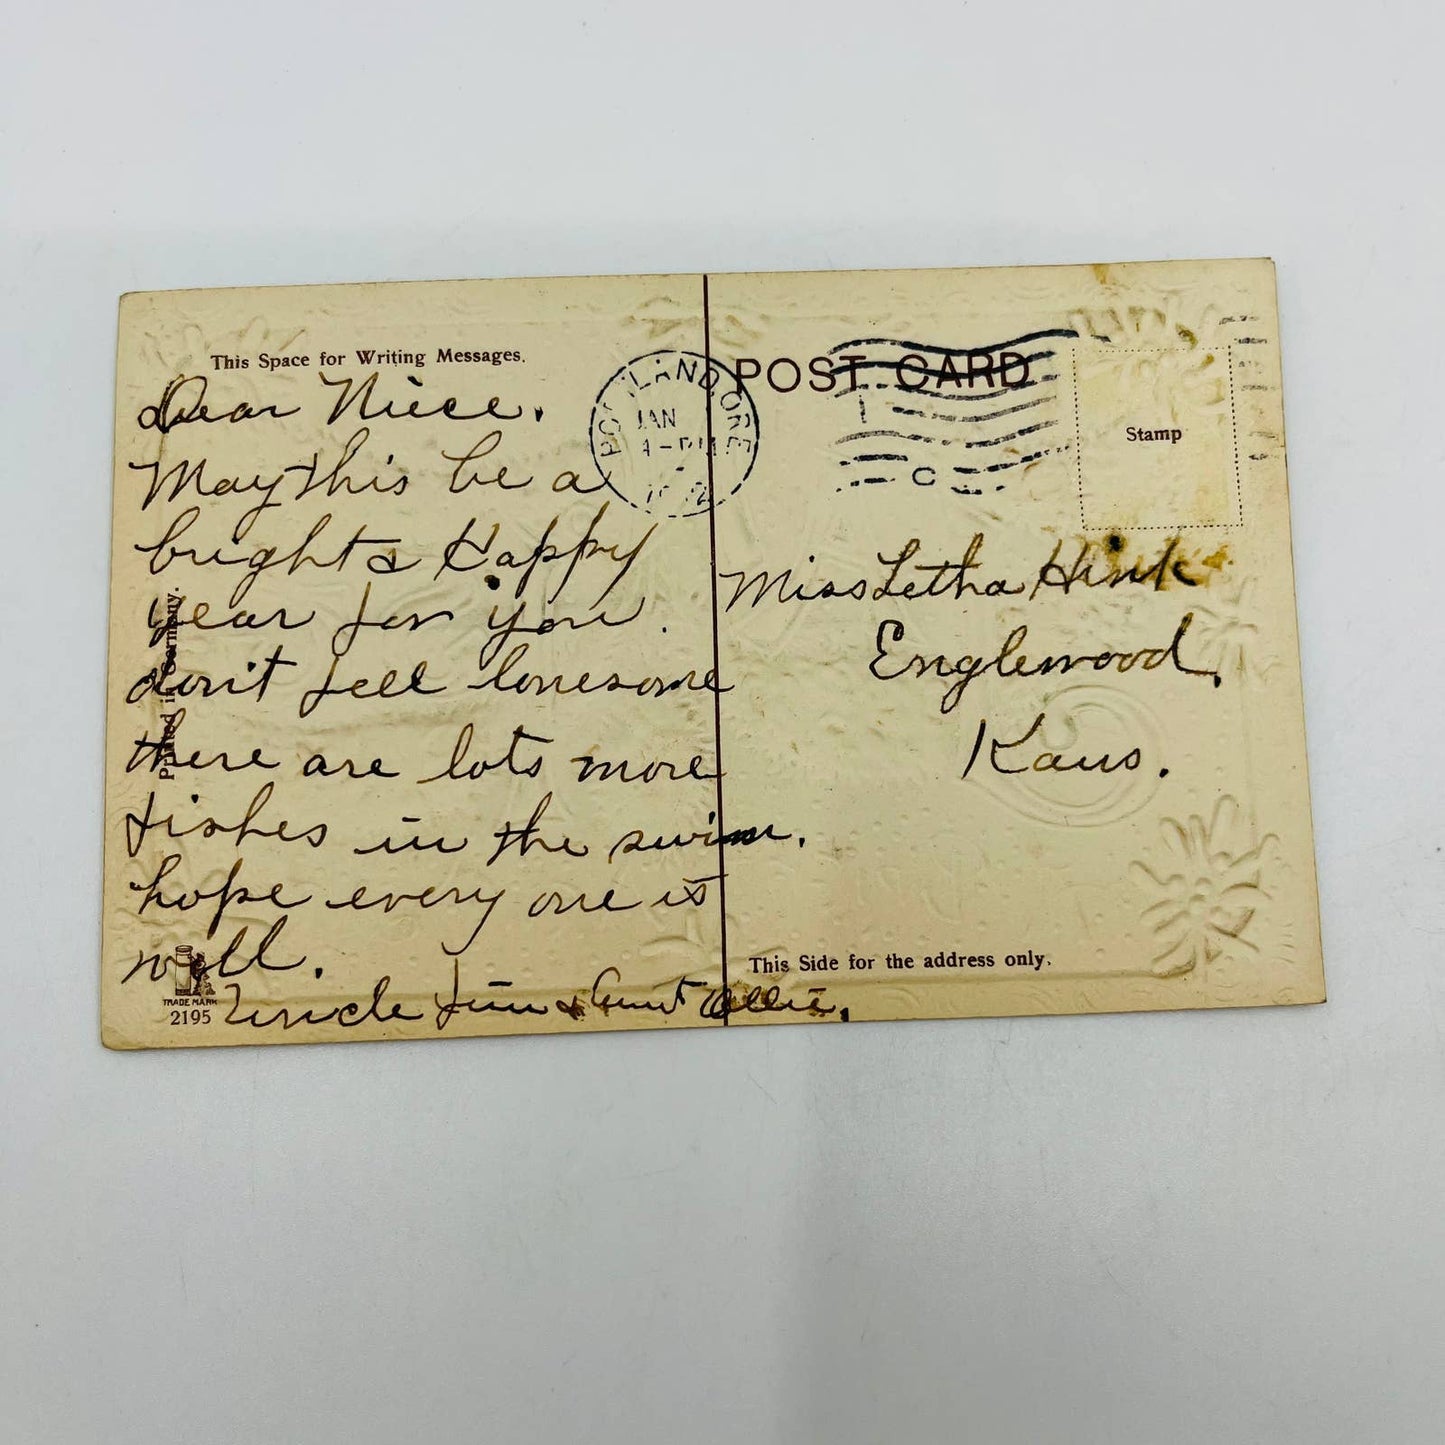 This Space for Writing Messages.
Dear Niece.
May this be a
bright & Happy
year for you.
don't feel lonesome
there are lots more
fishes in the swim.
hope every one is
well.
Uncle Jim & Aunt Ollie.
Printed in Germany.
TRADE MARK
2195
PORTLAND, ORE
JAN
4-PM
POST CARD
Stamp
Miss Letha Hink
Englewood,
Kans.
This Side for the address only.